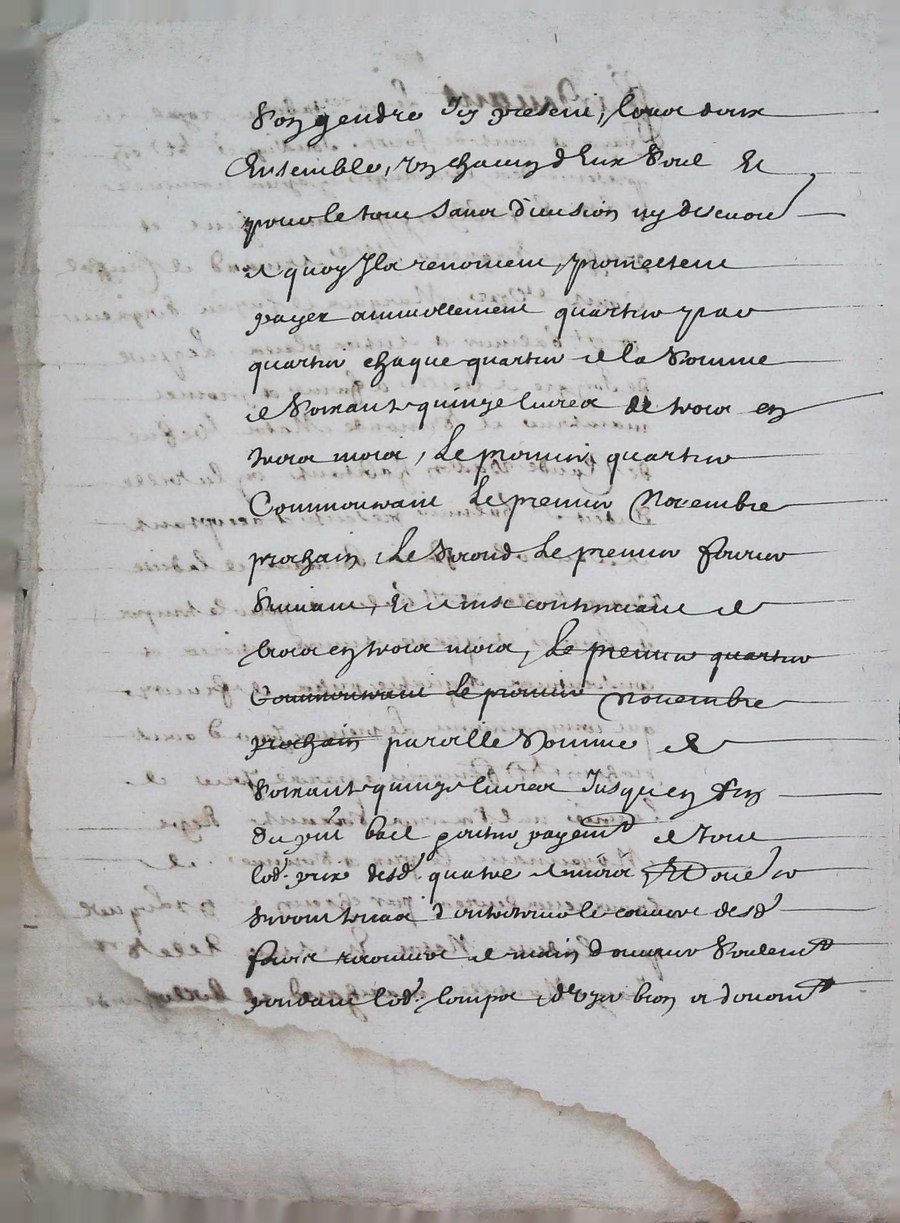 Son gendre Icy present, tous deux
Ensemble, un chacun d'Eux Seul Et
pour le tout sans diuision ny discution
a quoy Ils renoncent, promettent
payer annuellement quartier par
quartier chaque quartier de la Somme
de Soixante quinze liures de trois en
trois mois, Le premier quartier
Commencant Le premier Novembre
prochain, Le Second Le premier feurier
Suiuant, Et ainsi continuant de
trois en trois mois, Le premier quartier
Commencant Le premier Novembre
prochain pareille Somme de
Soixante quinze liures Jusques en fin
du pnt bail
lod. prix desd. quatre
Seront tenus d'entretenir le couuert desd.
fours de main d'oeuure Seulemt
pendant lod. temps, d'user bien et deuemt